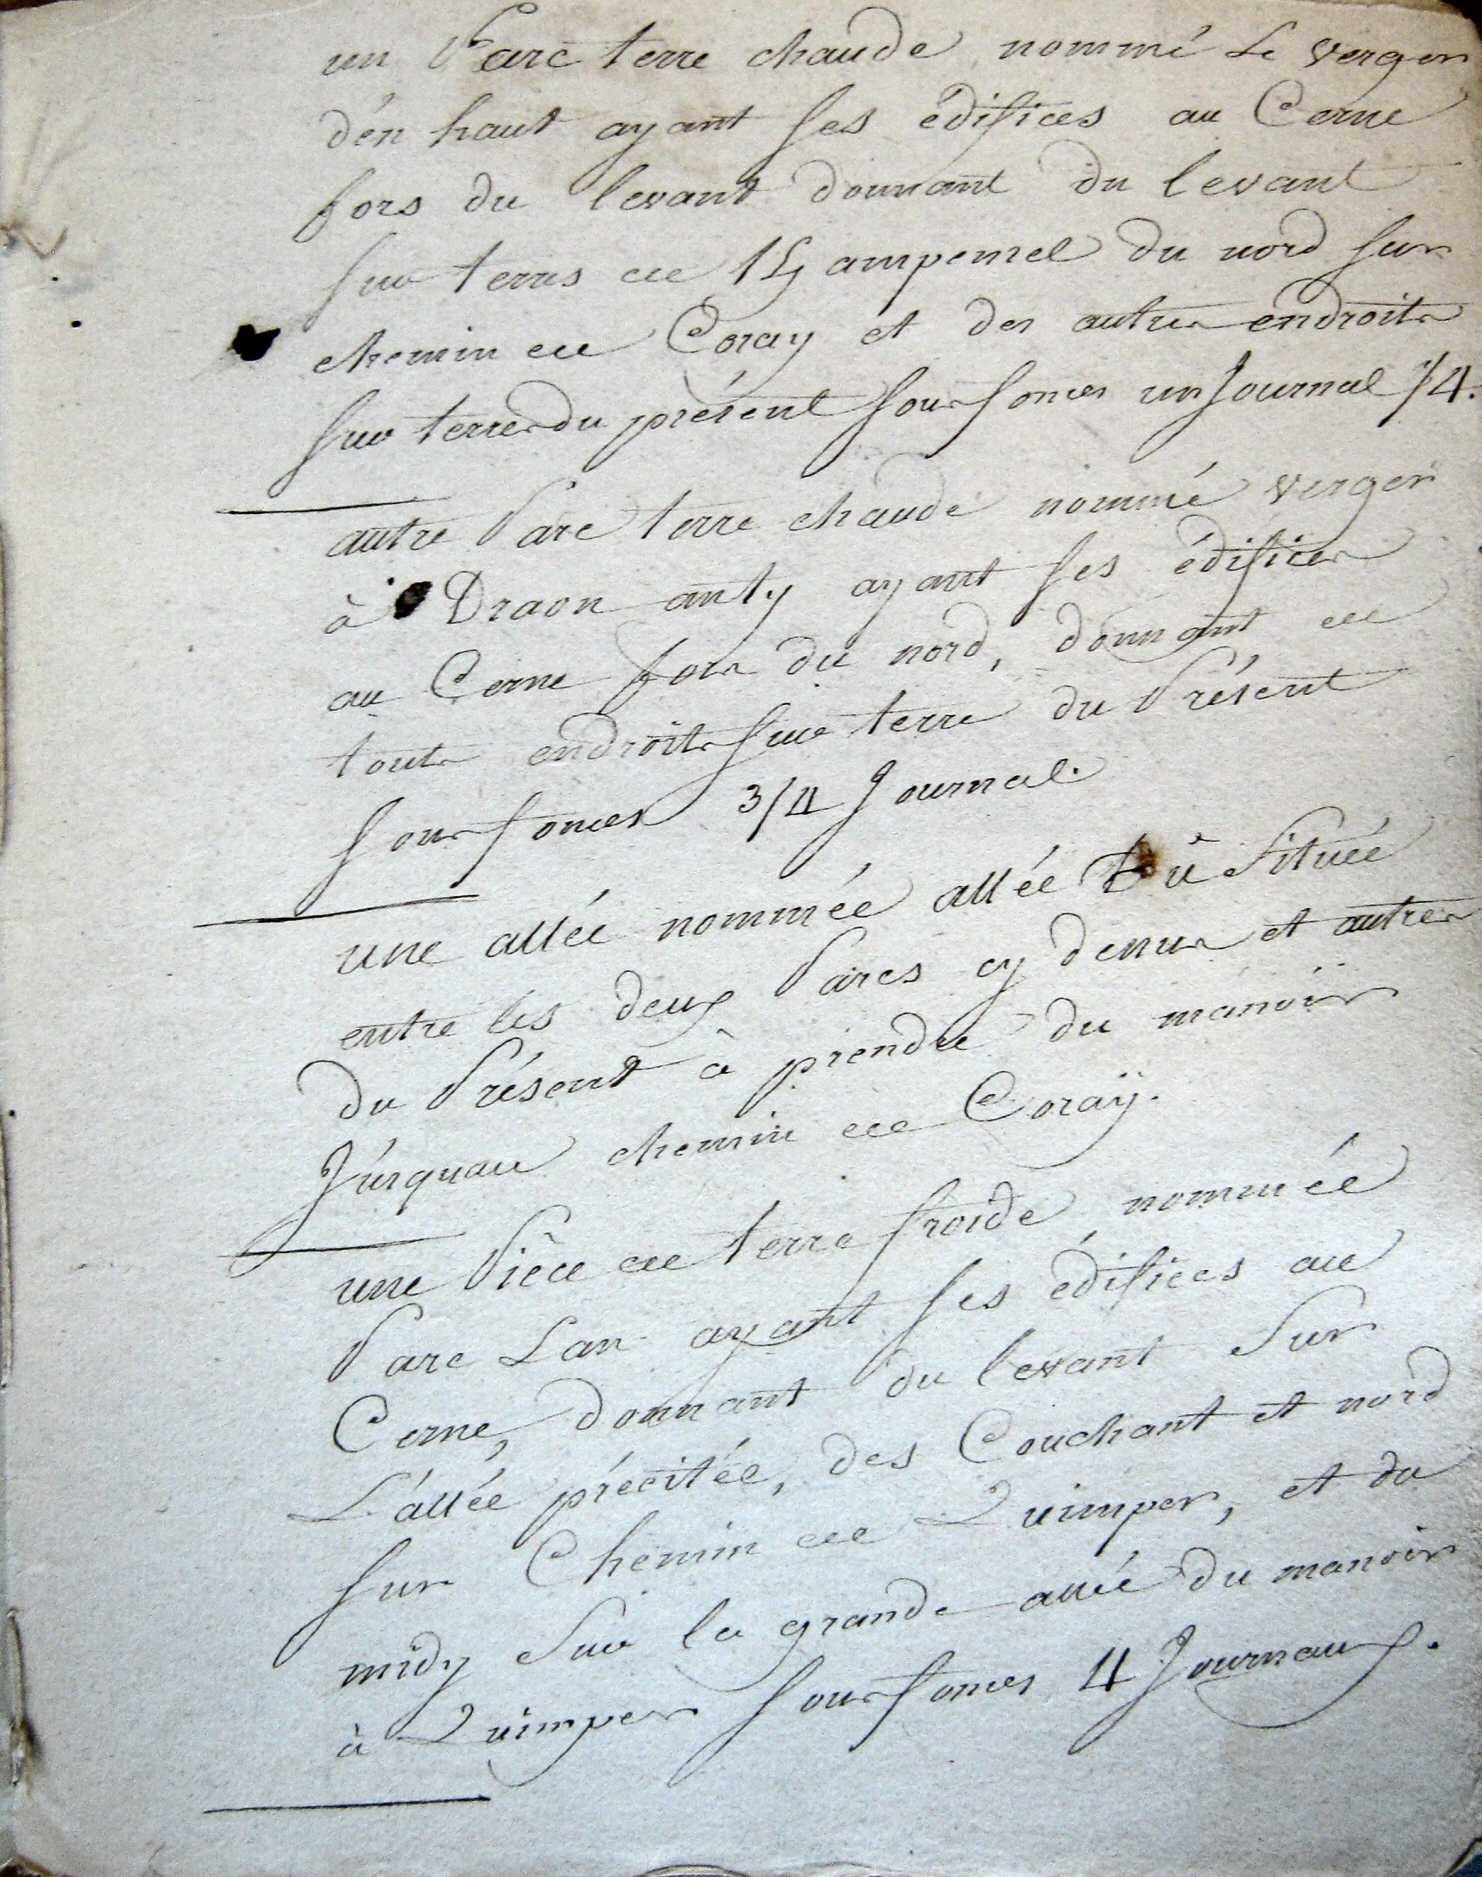 un Parc terre chaude nommé Le verger
d'en haut ayant ses édifices au Cerne
fors du levant donnant du levant
sur terres de du nord sur
chemin de Coray et des autres endroits
sur terre du présent sous fonces un Journal 1/4.
autre Parc terre chaude nommé verger
à Draon anty ayant ses édifices
au Cerne fors du nord, donnant de
touts endroits sur terre du Présent
sous fonces 3/4 Journal.
une allée nommée allée située
entre les deux Parcs cy denus et autres
du Présent à prendre du manoir
Jusquau chemin de Coraÿ.
une Pièce de terre froide nommée
Parc Lan ayant ses édifices au
Cerne, donnant du levant Sur
L'allée précitée, des Couchant et nord
sur Chemin de Quimper, et du
midy Sur la grande allée du manoir
à Quimper sous fonces 4 Journaux.